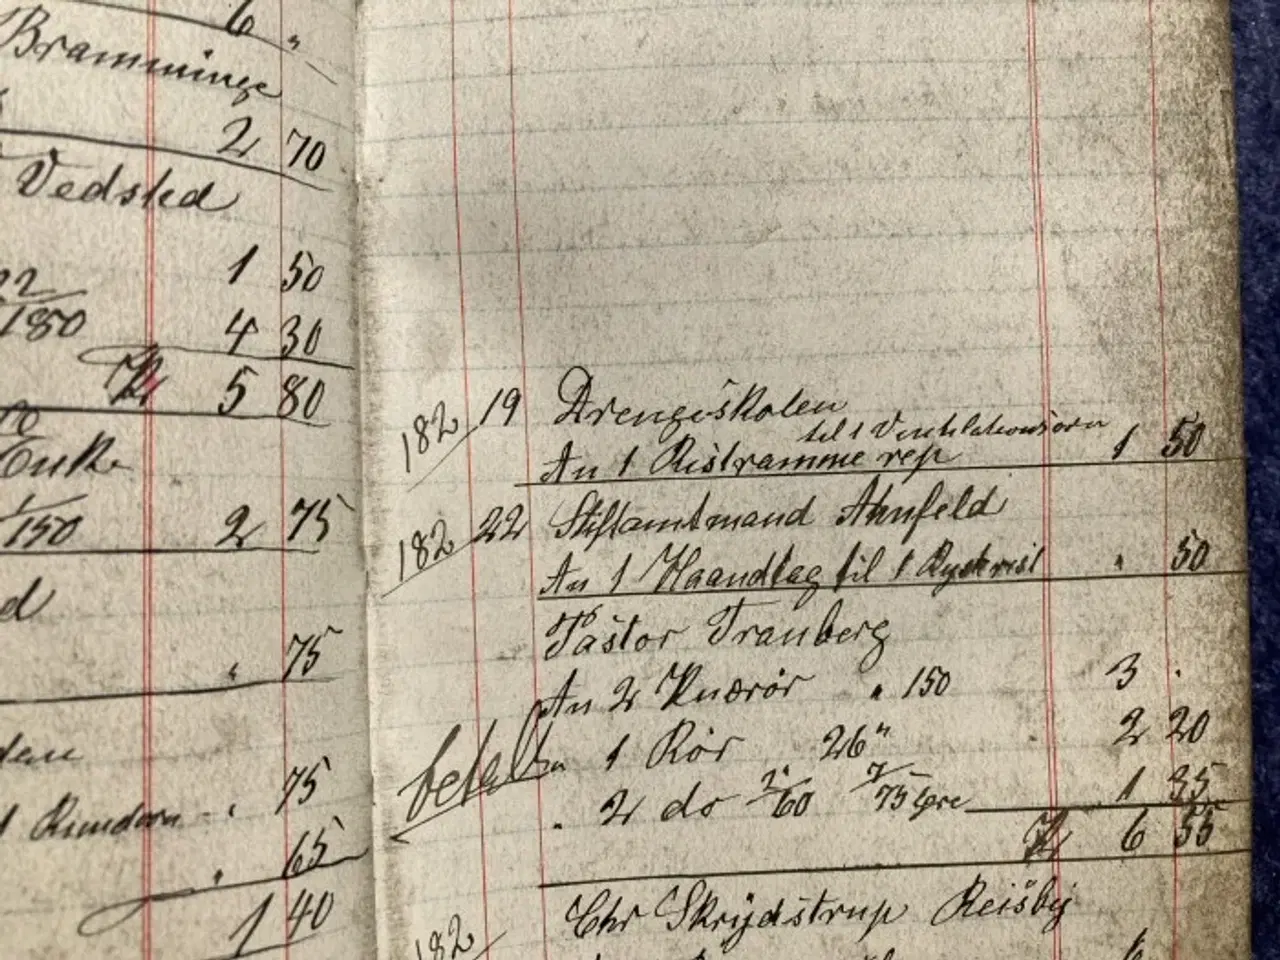 6 "
Bramminge
2 70
Vedsted
1 50
22
/180 4 30
Kr 5 80
Enke
1/150 2 75
d
" 75
" 75
1 Rundovn " 65
1 40
182 19 Drengeskolen
til 1 Ventilationsovn
An 1 Ristramme rep 1 50
182 22 Stiftamtmand Ahnfeld
An 1 Haandtag til 1 Rysterist " 50
Pastor Tranberg
An 2 Knærør " 150 3 "
betalt " 1 Rør 26" 2 20
" 2 do 2"/60 7/75 Øre 1 35
Kr 6 55
182 Chr Skrydstrup Reisby